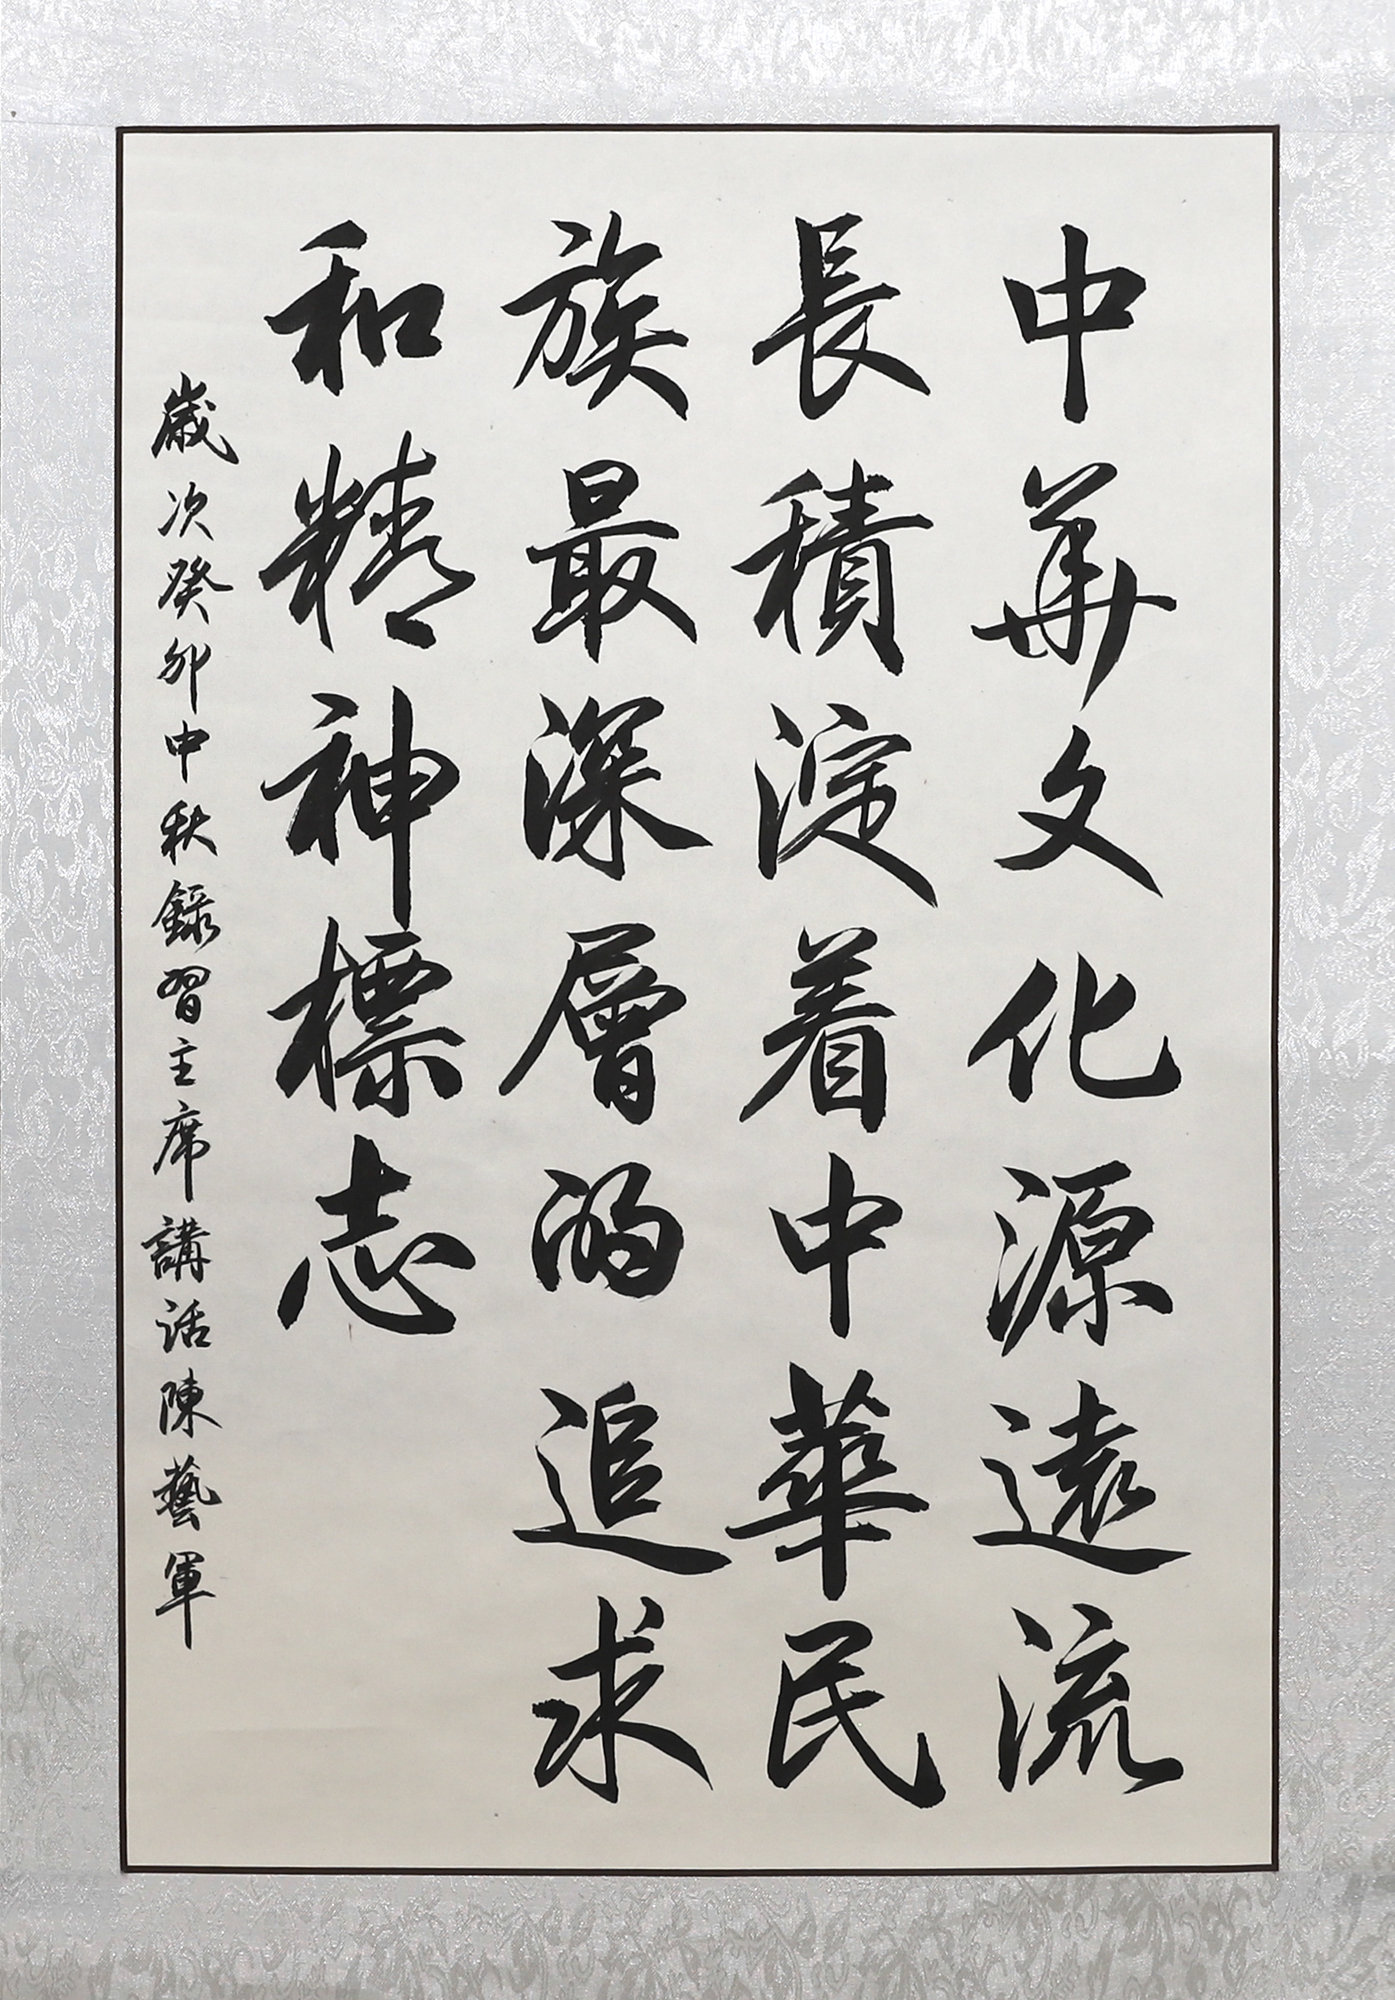 中華文化源遠流
長積淀着中華民
族最深層的追求
和精神標志
歲次癸卯中秋錄習主席講話陳藝軍